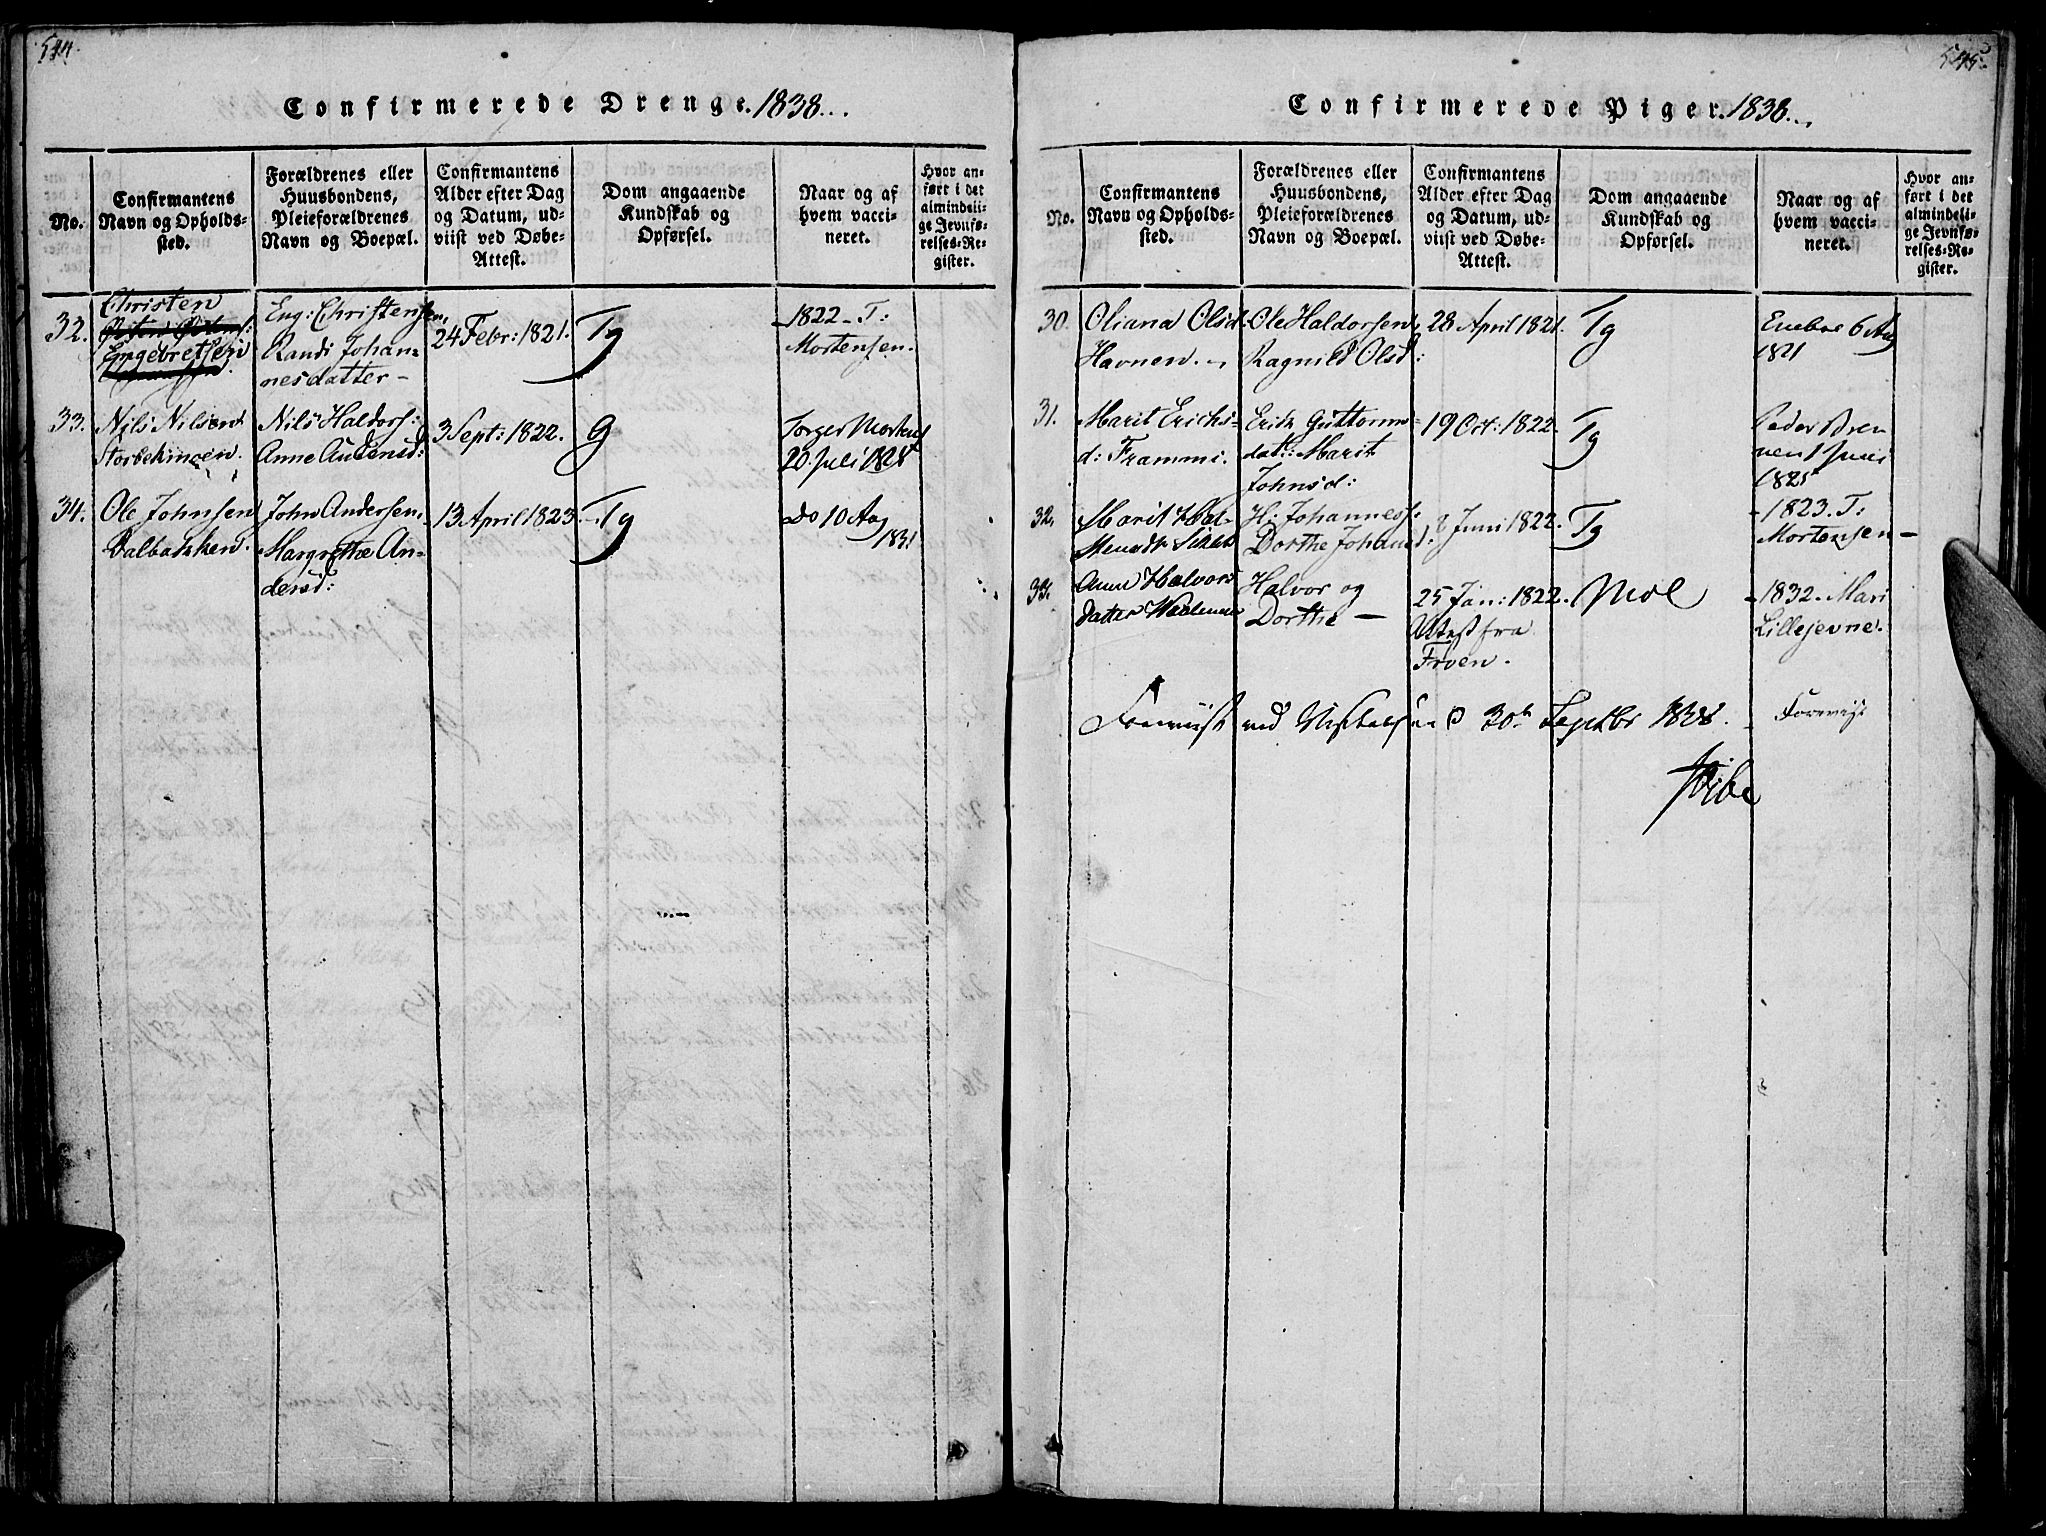 544.
Confirmerede Drenge. 1838...
No.
Confirmantens
Navn og Opholds-
sted.
Forældrenes eller
Huusbondens,
Pleieforældrenes
Navn og Boepæl.
Confirmantens
Alder efter Dag
og Datum, ud-
viist ved Døbe-
Attest.
Dom angaaende
Kundskab og
Opførsel.
Naar og af
hvem vacci-
neret.
Hvor an-
ført i det
almindeli-
ge Jevnfø-
relses-Re-
gister.
32. Christen
Engebretsen
Eng: Christensen,
Randi Johan-
nesdatter -
24 Febr: 1821.
Tg
- 1822 - T:
Mortensen.
33. Nils Nilsen
Nils Haldors:
Anne Audensd:
3 Sept: 1822.
G
Torger Mortens
20. Juli 1828
34. Ole Johnsen
Dalbakken.
John Andersen
Margrethe An-
dersd:
13. April 1823.
Tg
Do 10 Aug
1831
545.
Confirmerede Piger. 1838...
No.
Confirmantens
Navn og Opholds-
sted.
Forældrenes eller
Huusbondens,
Pleieforældrenes
Navn og Boepæl.
Confirmantens
Alder efter Dag
og Datum, ud-
viist ved Døbe-
Attest.
Dom angaaende
Kundskab og
Opførsel.
Naar og af
hvem vacci-
neret.
Hvor an-
ført i det
almindeli-
ge Jevnfø-
relses-Re-
gister.
30. Oliana Olsd.
Havnen.
Ole Haldorsen,
Ragnild Olsd:
28 April 1821.
Tg
Eneboe 6 Aug
1821
31. Marit Erichs-
d: Frammi.
Erik Guttorms-
dat: Marit
Johnsd:
19 Oct: 1822.
Tg
Peder Bren
1825
32. Marit
H: Johannes:
Dorthe Johansd:
Juni 1822.
Tg
- 1823. T:
Mortensen -
33. Anne Halvors
datter
Halvor og
Dorthe -
25 Jan: 1822.
Attest fra
Froen.
- 1832. Mari
Lillejevne.
Fremviist ved 30te Septbr 1838.
Foreviist
Vibe